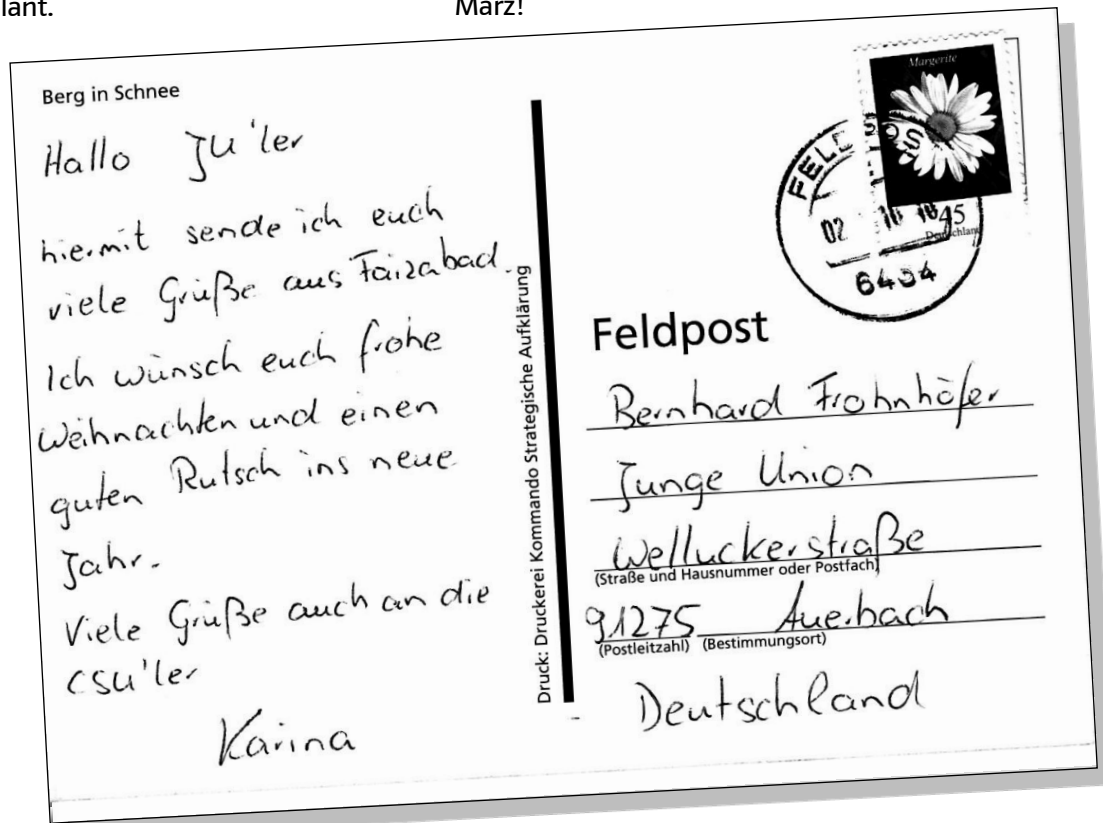 lant.
März!
Berg in Schnee
Hallo JU'ler
hiermit sende ich euch
viele Grüße aus Faizabad.
Ich wünsch euch frohe
Weihnachten und einen
guten Rutsch ins neue
Jahr.
Viele Grüße auch an die
CSU'ler
Karina
Druck: Druckerei Kommando Strategische Aufklärung
Margerite
45
Deutschland
FELDPOS
02 10 10
6434
Feldpost
Bernhard Frohnhöfer
Junge Union
Welluckerstraße
(Straße und Hausnummer oder Postfach)
91275 Auerbach
(Postleitzahl) (Bestimmungsort)
Deutschland